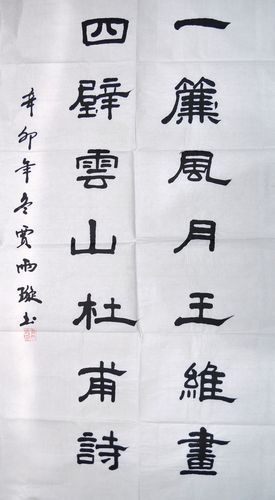 一簾風月王維畫
四壁雲山杜甫詩
辛卯年冬賈雨璇書